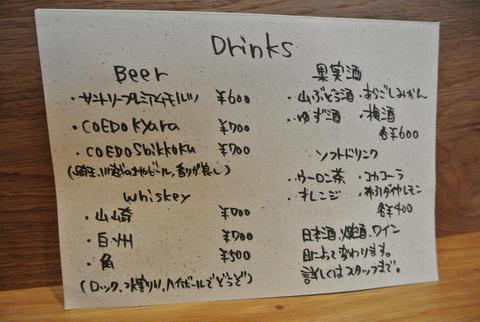 Drinks
Beer
・サントリープレミアムモルツ ¥600
・COEDO Kyara ¥700
・COEDO Shikkoku ¥700
(埼玉、川越の地ビール、香りが良し)
Whiskey
・山崎 ¥700
・白州 ¥700
・角 ¥500
(ロック、水割り、ハイボールでどうぞ)
果実酒
・山ぶどう酒 ・あらごしみかん
・ゆず酒 ・梅酒
各¥600
ソフトドリンク
・ウーロン茶 ・コカコーラ
・オレンジ ・布引ダイヤレモン
各¥400
日本酒、焼酎、ワイン
日によって変わります。
詳しくはスタッフまで。